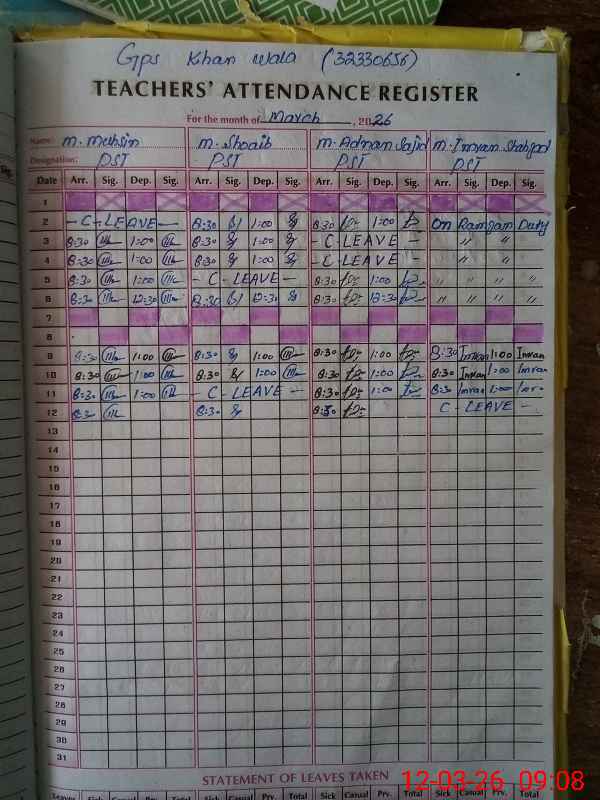 Gps Khan wala (32330656)
TEACHERS' ATTENDANCE REGISTER
For the month of March, 2026
Name: M. Muhsin M. Shoaib M. Adnan Sajid M. Imran Shahzad
Designation: PST PST PST PST
Date Arr. Sig. Dep. Sig. Arr. Sig. Dep. Sig. Arr. Sig. Dep. Sig. Arr. Sig. Dep. Sig.
1
2 - C - LEAVE - 8:30 1:00 8:30 1:00 On Ramzan Duty
3 8:30 1:00 8:30 1:00 - C - LEAVE - " " "
4 8:30 1:00 8:30 1:00 - C - LEAVE - " " "
5 8:30 1:00 - C - LEAVE - 8:30 1:00 " " " "
6 8:30 12:30 8:30 12:30 8:30 12:30 " " " "
7
8
9 8:30 1:00 8:30 1:00 8:30 1:00 8:30 Imran 1:00 Imran
10 8:30 1:00 8:30 1:00 8:30 1:00 8:30 Imran 1:00 Imran
11 8:30 1:00 - C - LEAVE - 8:30 1:00 8:30 Imran 1:00 Imran
12 8:30 8:30 8:30 C - LEAVE -
13
14
15
16
17
18
19
20
21
22
23
24
25
26
27
28
29
30
31
STATEMENT OF LEAVES TAKEN
Leaves Sick Casual Prv. Total Sick Casual Prv. Total Sick Casual Prv. Total Sick Casual Prv. Total
12-03-26 09:08